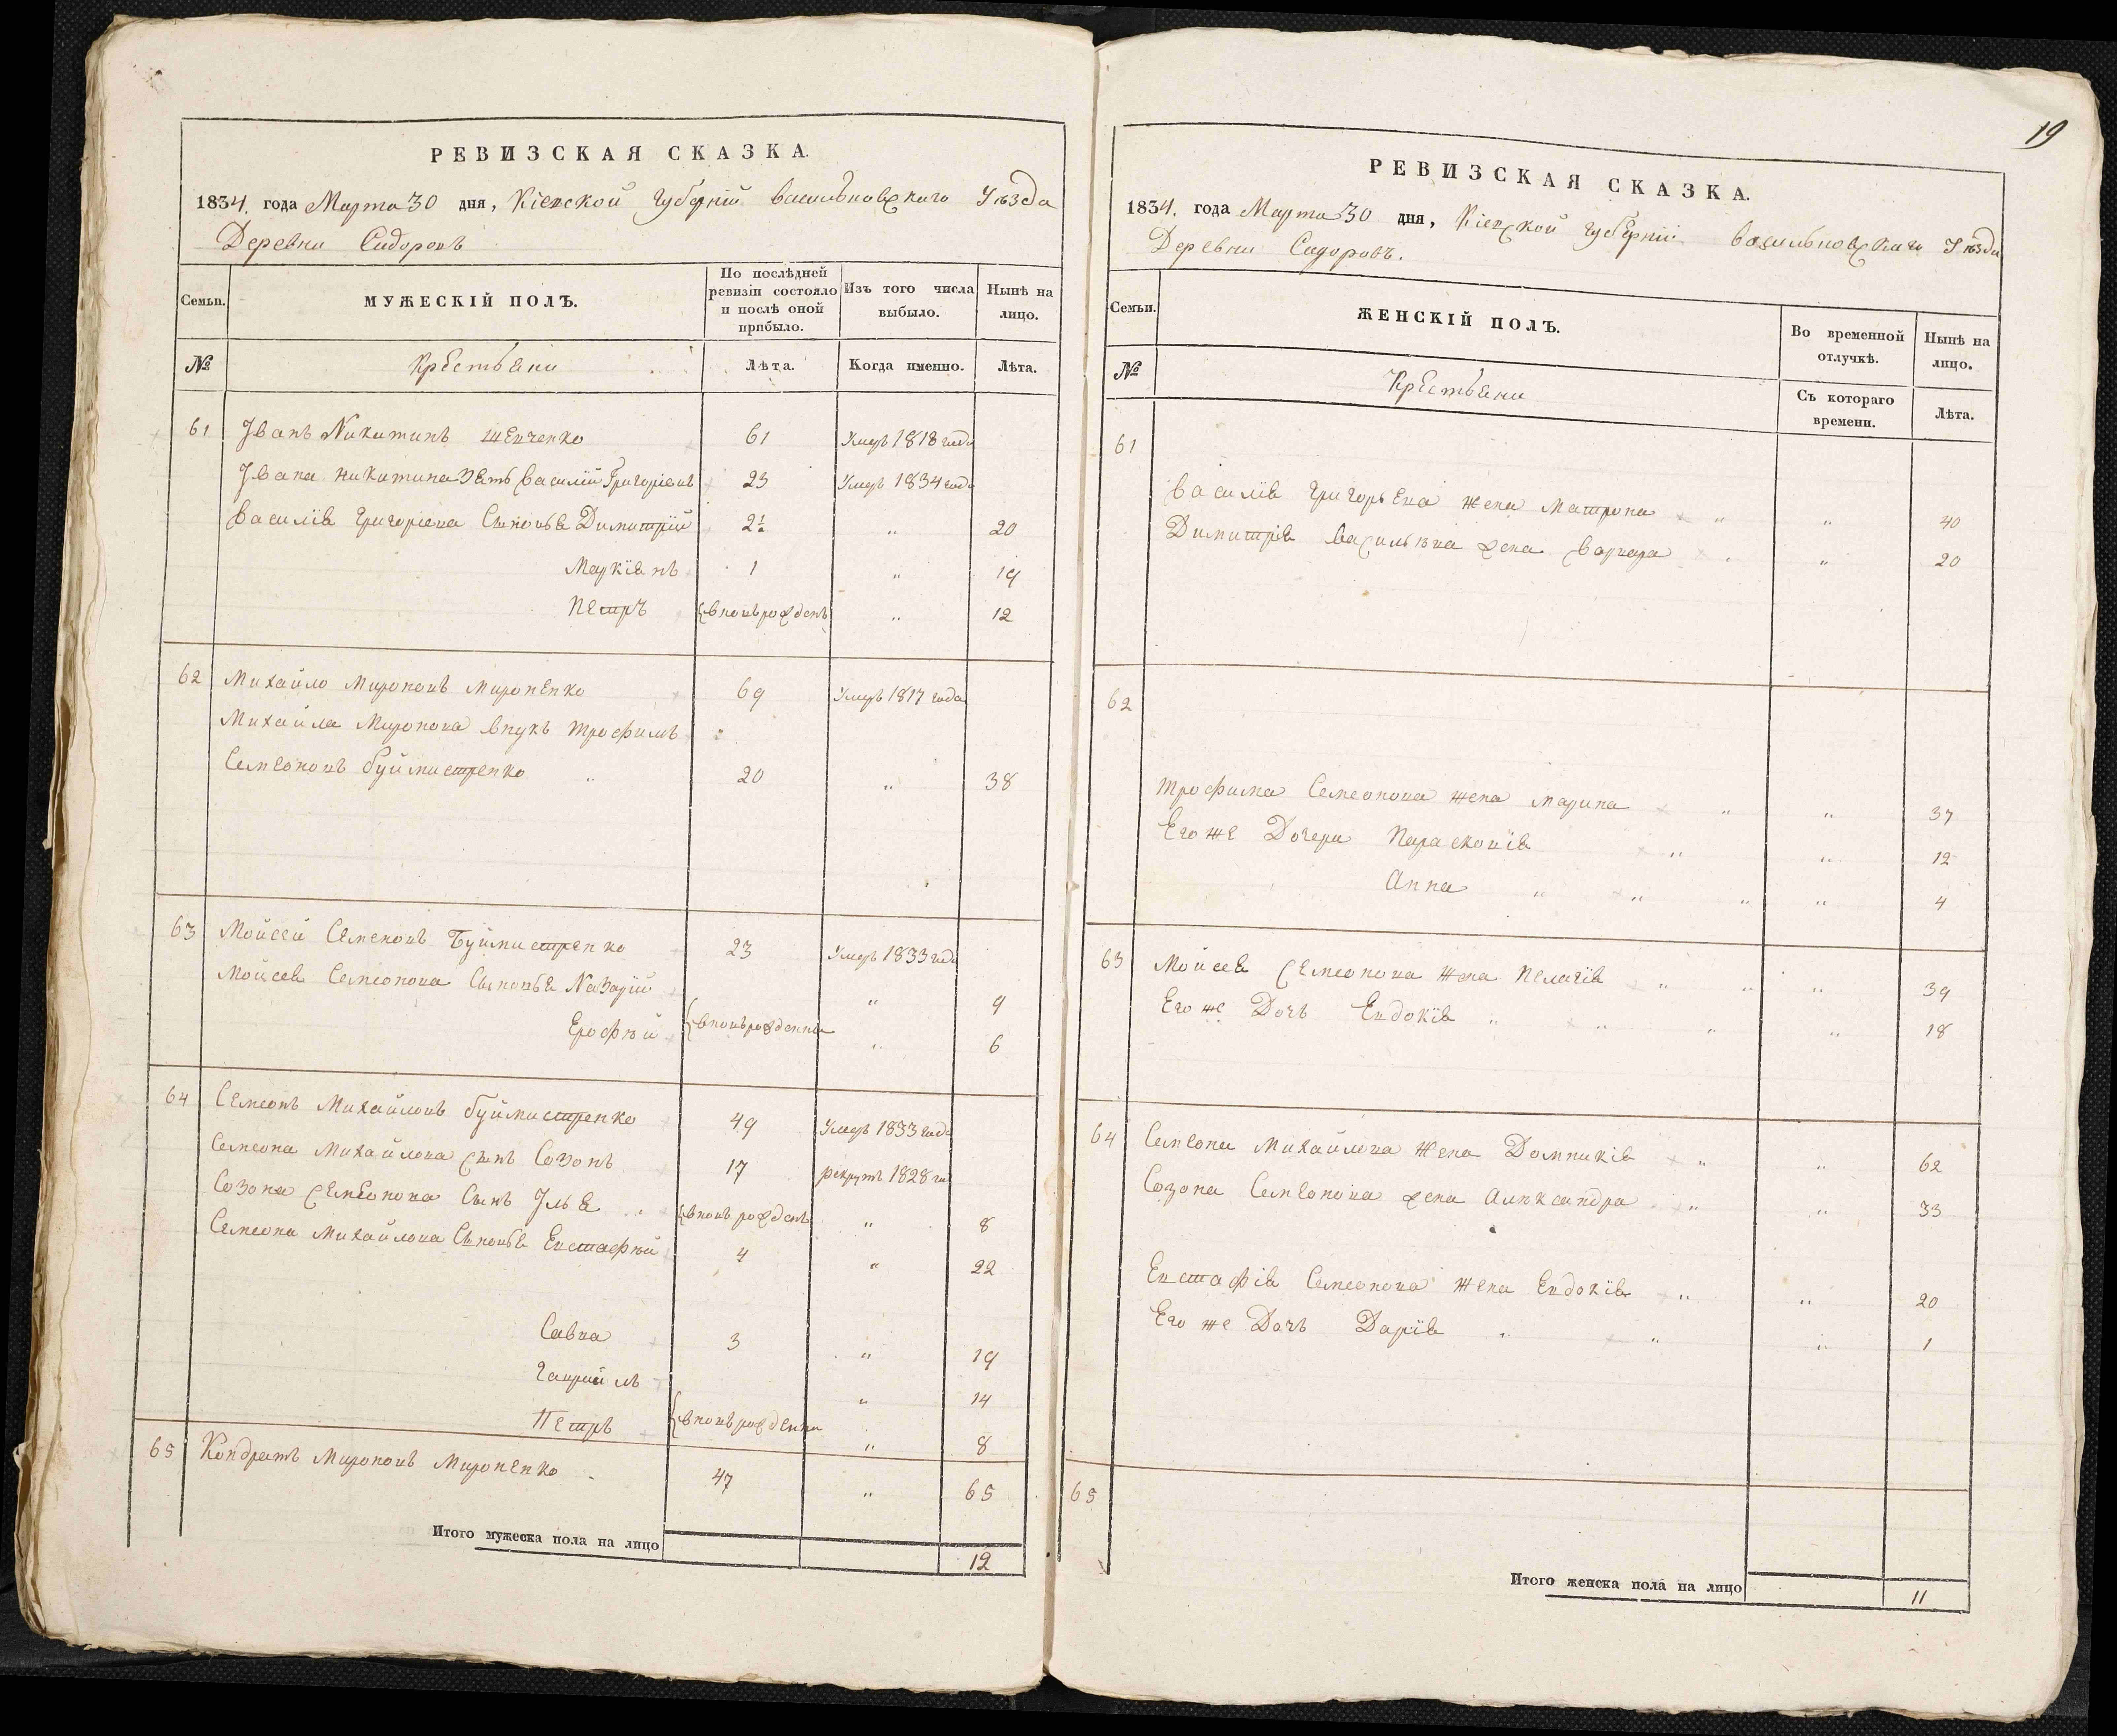 РЕВИЗСКАЯ СКАЗКА.
1834. года Марта 30 дня, Кіевской Губерніи Васильковскаго Уѣзда
Деревни Сидоровъ
Семьи. МУЖЕСКІЙ ПОЛЪ. По послѣдней ревизіи состояло и послѣ оной прибыло. Изъ того числа выбыло. Нынѣ на лицо.
№ Крестьяни Лѣта. Когда именно. Лѣта.
61 Іванъ Никитинъ Шевченко 61 Умеръ 1818 года
Івана Никитина Зять Василій Григоріевъ 23 Умеръ 1834 года
Василія Григоріева Сыновья Димитрій 2½ „ 20
Маркіянъ 1 „ 19
Петръ вновьрожденъ „ 12
62 Михайло Мироновъ Мироненко 69 Умеръ 1817 года
Михайла Миронова внукъ Трофимъ
Семеоновъ Буймистренко „ 20 „ 38
63 Мойсей Семеновъ Буймистренко 23 Умеръ 1833 года
Мойсея Семеонова Сыновья Назарій „ 9
Ерофѣй вновьрожденны „ 6
64 Семеонъ Михайловъ Буймистренко 49 Умеръ 1833 года
Семеона Михайлова сынъ Созонъ 17 рекрутъ 1828 го
Созона Семеонова Сынъ Илья „ вновьрожденъ „ 8
Семеона Михайлова Сыновья Евстафѣй 4 „ 22
Савва 3 „ 19
Гавриилъ „ 14
Петръ вновьрожденны „ 8
65 Кондратъ Мироновъ Мироненко 47 „ 65
Итого мужеска пола на лицо 12
19
РЕВИЗСКАЯ СКАЗКА.
1834. года Марта 30 дня, Кіевской Губерніи Васильковскаго Уѣзда
Деревни Сидоровъ.
Семьи. ЖЕНСКІЙ ПОЛЪ. Во временной отлучкѣ. Нынѣ на лицо.
№ Крестьяни Съ котораго времени. Лѣта.
61
Василія Григорьева жена Матрона „ „ 40
Димитрія Васильева жена Варвара „ „ 20
62
Трофима Семеонова жена Марина „ „ 37
Его же Дочери Парасковія „ „ 12
Анна „ „ „ „ 4
63 Мойсея Семеонова жена Пелагія „ „ „ 39
Его же Дочь Евдокія „ „ „ „ 18
64 Семеона Михайлова жена Домникія „ „ 62
Созона Семеонова жена Александра „ „ 33
Евстафія Семеонова жена Евдокія „ „ 20
Его же Дочь Дарія „ „ „ 1
65
Итого женска пола на лицо 11